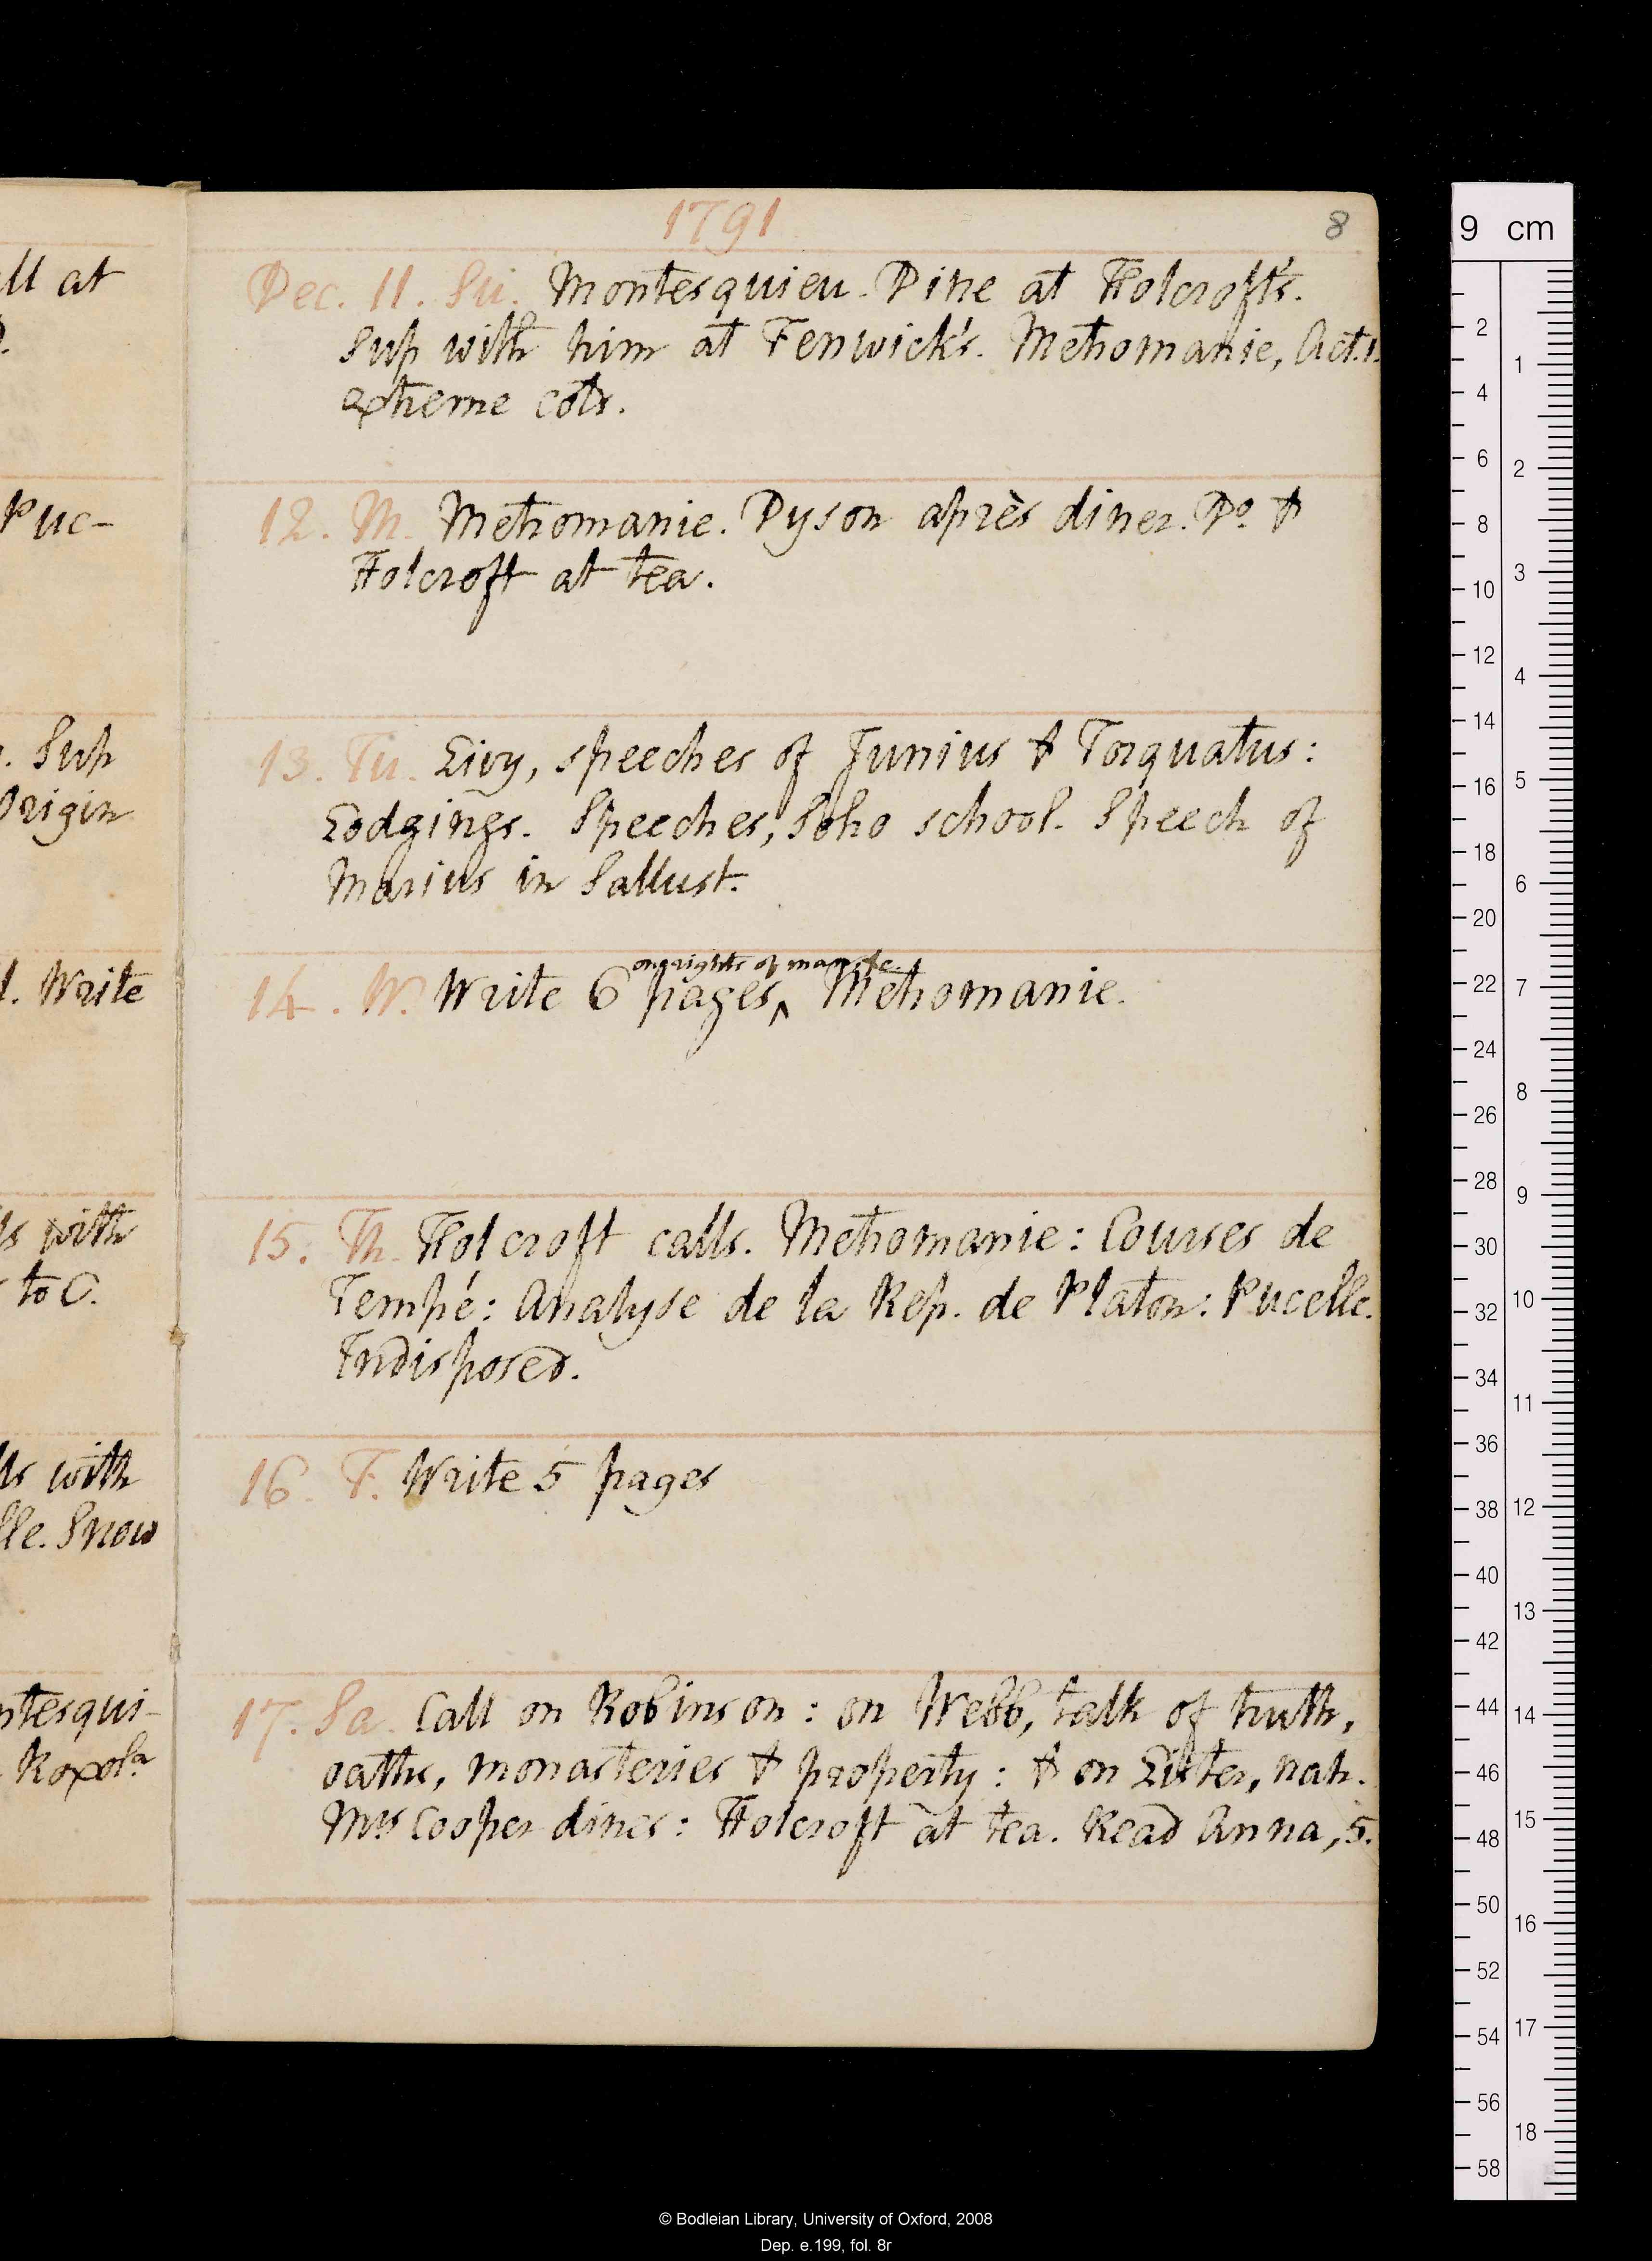 ll at
Puc-
. Sup
Origin
. Write
with
to C.
with
lle. Snow
ntesqui-
Roxola
1791
8
Dec. 11. Su. Montesquieu. Dine at Holcroft's.
Sup with him at Fenwick's. Metromanie, Act 1.
extreme cold.
12. M. Metromanie. Dyson après diner. Do &
Holcroft at tea.
13. Tu. Livy, speeches of Junius & Torquatus:
Lodgings. Speeches, Soho school. Speech of
Marius in Sallust.
on rights of man, &c.
14. W. Write 6 pages‸ Metromanie.
15. Th. Holcroft calls. Metromanie: Courses de
Tempé: Analyse de la Rep. de Platon: Pucelle.
Indisposed.
16. F. Write 5 pages
17. Sa. Call on Robinson: on Webb, talk of truth,
oaths, monasteries & property: & on Lister, nah.
Mrs Cooper dines: Holcroft at tea. Read Anna, 5.
9 cm
2
4
6
8
10
12
14
16
18
20
22
24
26
28
30
32
34
36
38
40
42
44
46
48
50
52
54
56
58
1
2
3
4
5
6
7
8
9
10
11
12
13
14
15
16
17
18
© Bodleian Library, University of Oxford, 2008
Dep. e.199, fol. 8r